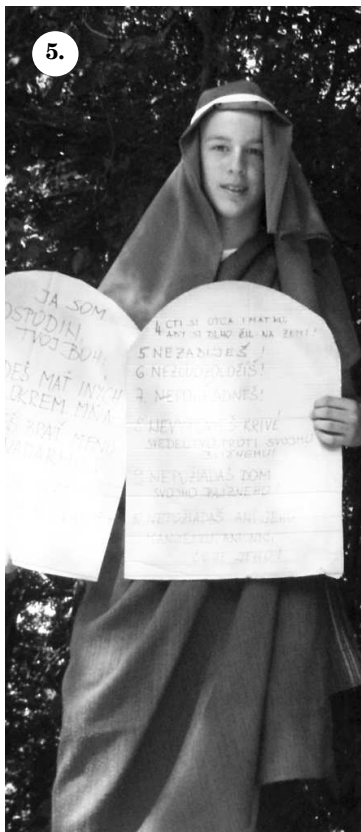 5.
JA SOM
HOSPODIN
TVOJ BOH,
MAŤ INÝCH
OKREM MŇA
BRAŤ MENO
4. CTI SI OTCA I MATKU,
ABY SI DLHO ŽIL NA ZEMI!
5 NEZABIJEŠ!
6 NEZCUDZOLOŽÍŠ!
7 NEPOKRADNEŠ!
8 NEVYPOVIEŠ KRIVÉ
SVEDECTVO PROTI SVOJMU
BLÍŽNEMU!
9 NEPOŽIADAŠ DOM
SVOJHO BLÍŽNEHO
NEPOŽIADAŠ ANI JEHO
MANŽELKU, ANI NIČ,
ČO JE JEHO!